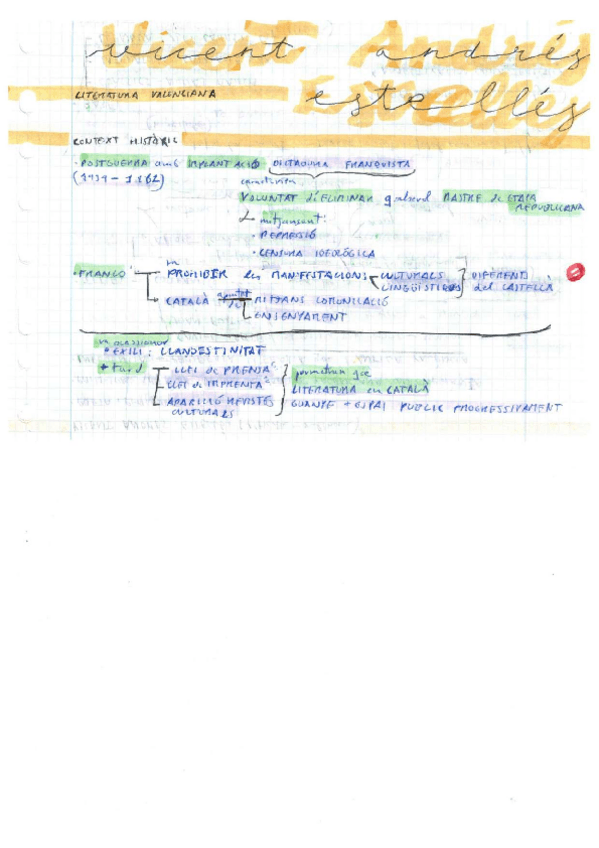 Vicent Andrés
Estellés
LITERATURA VALENCIANA
CONTEXT HISTÒRIC
· POSTGUERRA amb IMPLANTACIÓ DICTADURA FRANQUISTA
(1939 - 1962)
VOLUNTAT d'ELIMINAR qualsevol RASTRE de l'ETAPA
REPUBLICANA
mitjançant:
· REPRESSIÓ
· CENSURA IDEOLÒGICA
· FRANCO
va
PROHIBIR les MANIFESTACIONS CULTURALS
LINGÜÍSTIQUES
DIFERENTS
del CASTELLÀ
CATALÀ MITJANS COMUNICACIÓ
ENSENYAMENT
va ocasionar
· EXILI i CLANDESTINITAT
+ tard
LLEI de PREMSA
LLEI de IMPREMTA
APARICIÓ REVISTES
CULTURALS
permeten que
LITERATURA en CATALÀ
GUANYE + ESPAI PÚBLIC PROGRESSIVAMENT